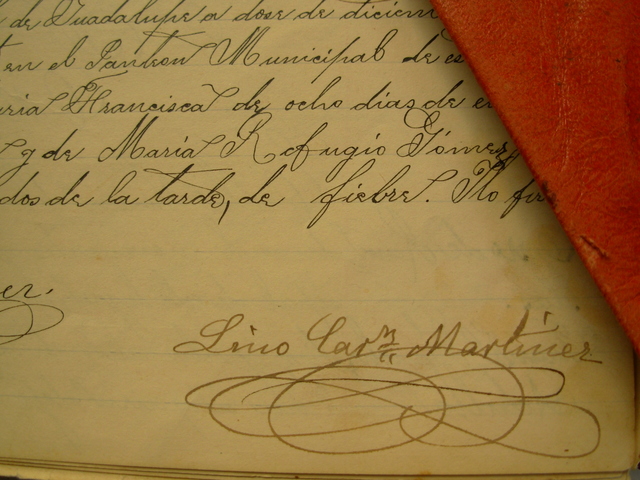 de Guadalupe a dose de diciem
en el Panteon Municipal de es
uria Francisca de ocho dias de e
y de Maria Refugio Gómez
dos de la tarde, de fiebre. No fir
ez.
Lino Carz Martinez